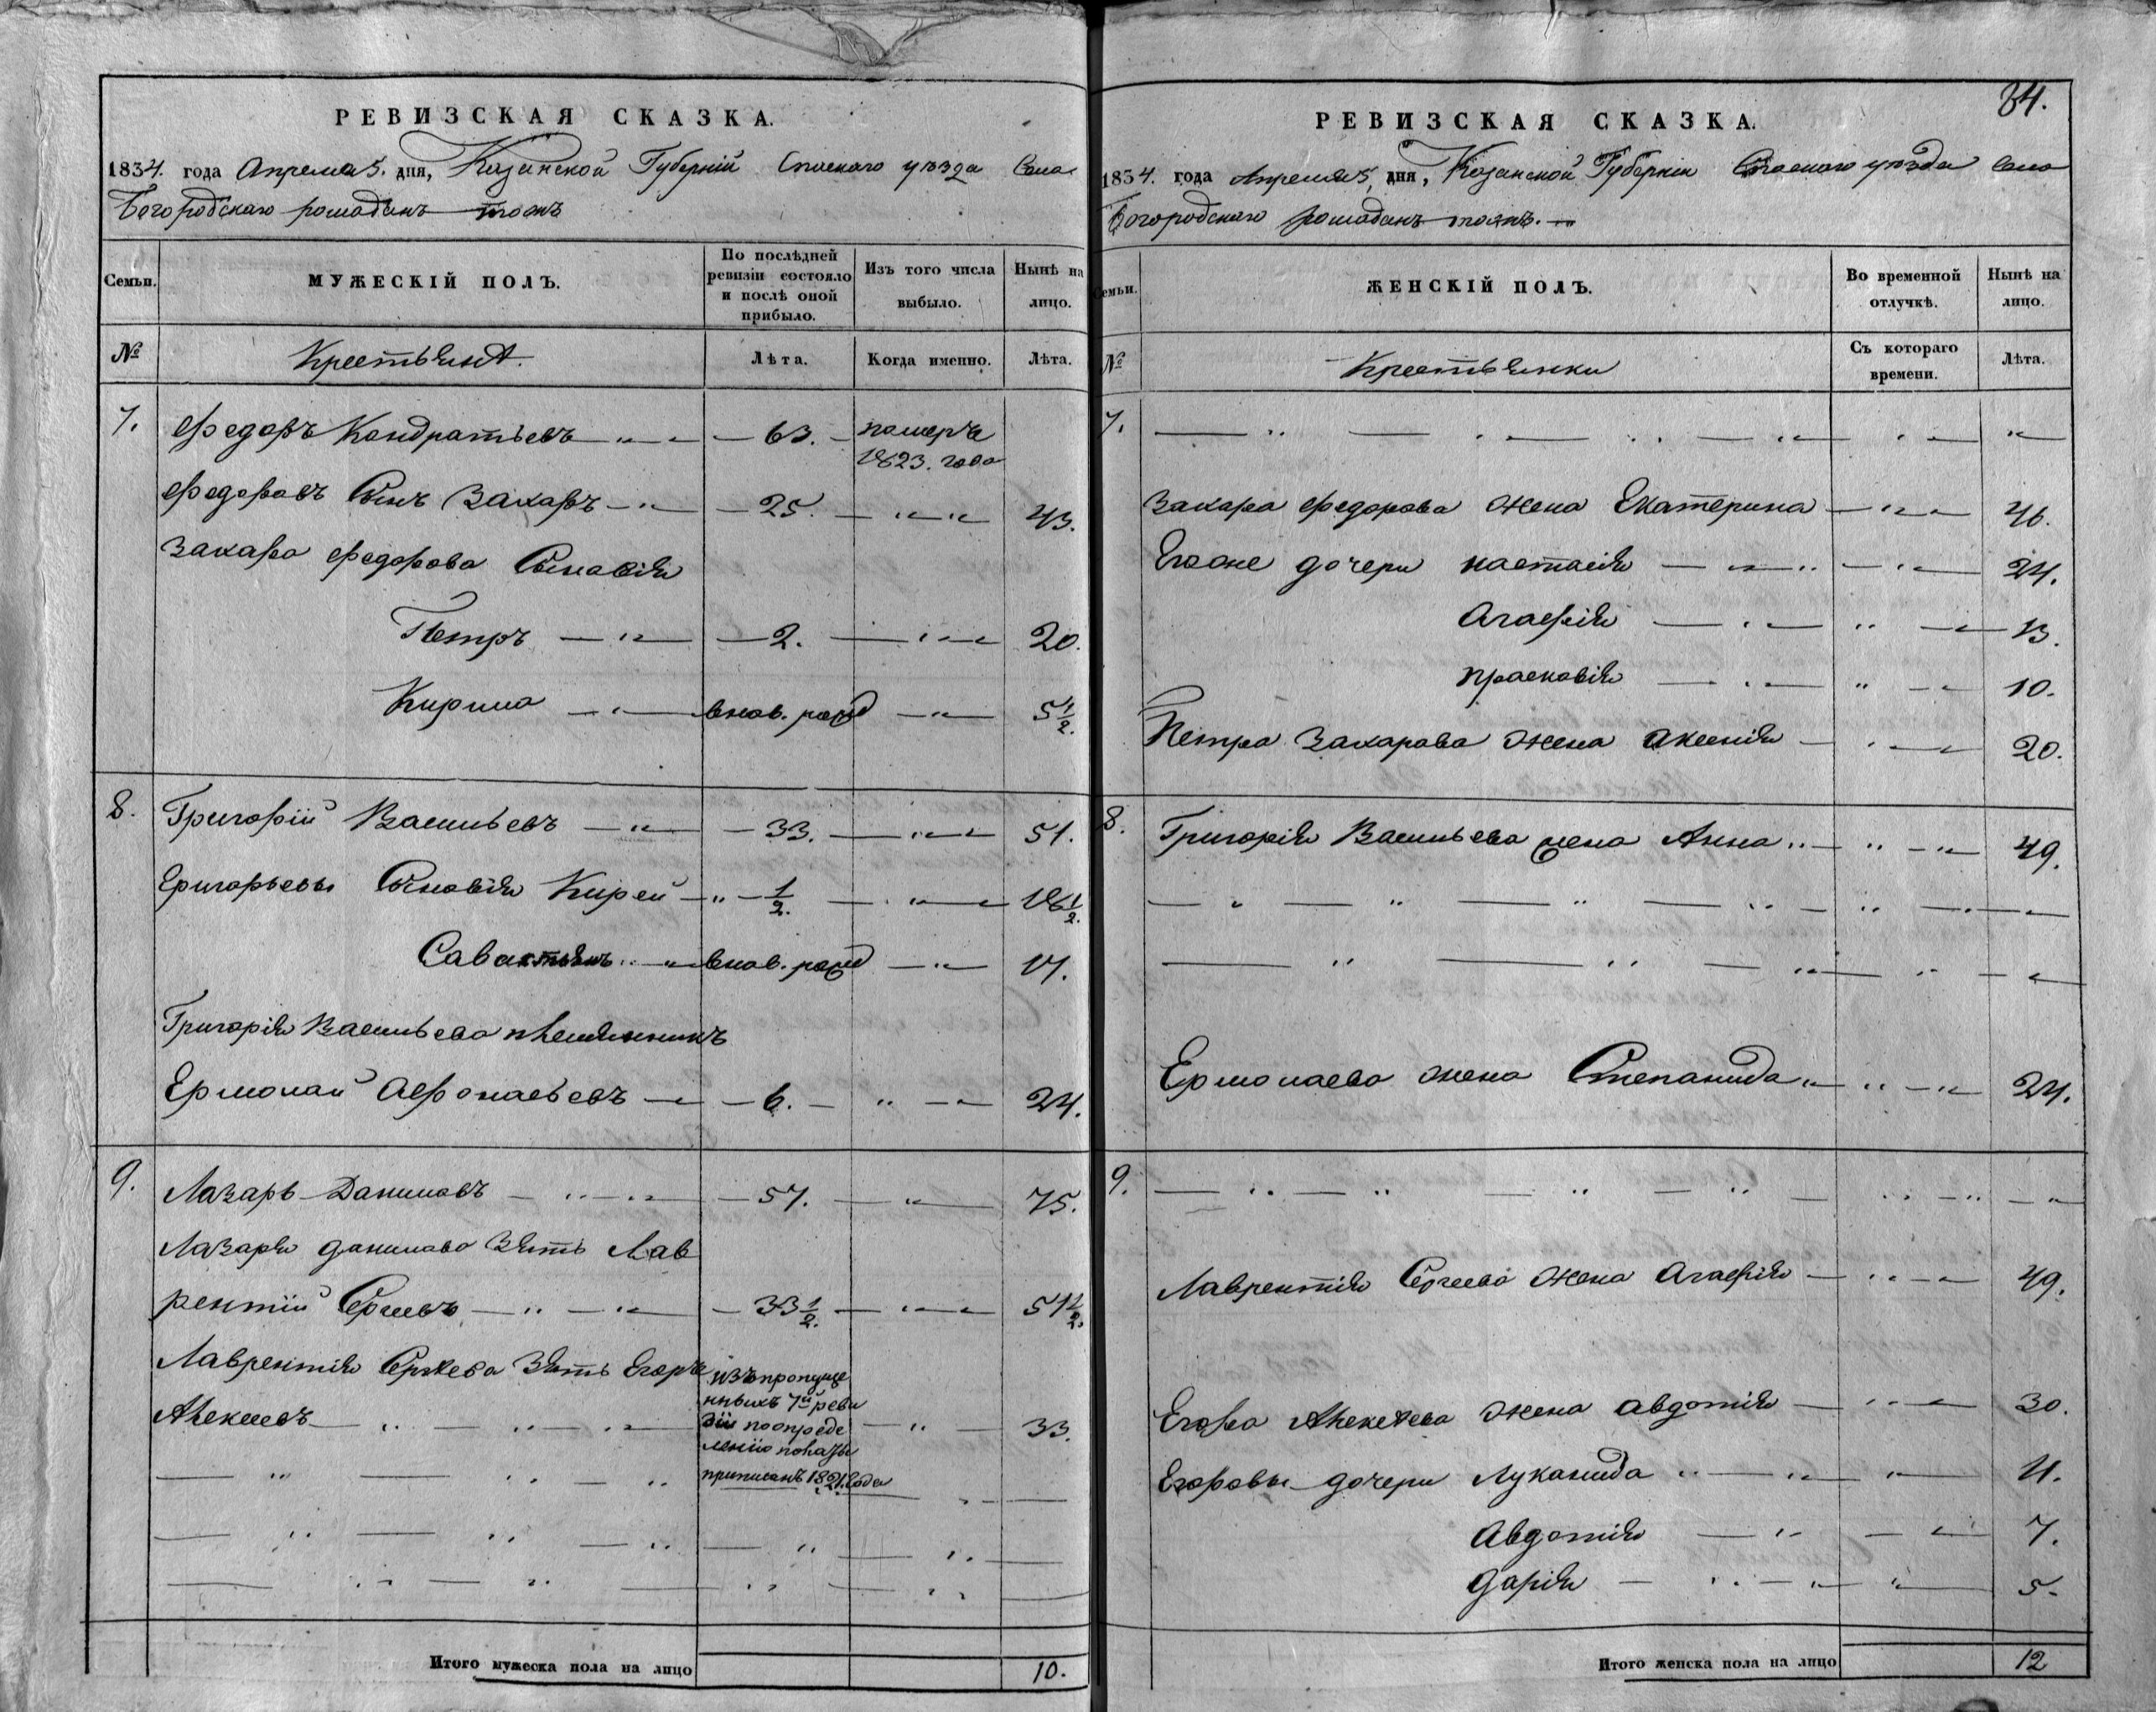 РЕВИЗСКАЯ СКАЗКА.
1834. года Апреля 5. дня, Казанской Губерніи Спаскаго уѣзда Села
Богородскаго рамаданъ тожъ
Семьи.
МУЖЕСКІЙ ПОЛЪ.
По послѣдней ревизіи состояло и послѣ оной прибыло.
Изъ того числа выбыло.
Нынѣ на лицо.
№ Крестьянѣ. Лѣта. Когда именно. Лѣта.
7. Федоръ Кондратьевъ — 63. — померъ
1823. года
Федоровъ Сынъ Захаръ — 25. — 43.
Захара Федорова Сыновія
Петръ — 2. — 20.
Кирила — внов. рожд — 5 1/2.
8. Григорій Васильевъ — 33. — 51.
Григорьевы Сыновія Кирей — 1/2. — 18 1/2.
Савастьянъ — внов. рожд — 17.
Григорія Васильева племянникъ
Ермолай Афонасьевъ — 6. — 24.
9. Лазарь Даниловъ — 57. — 75.
Лазаря данилова Зять Лав
рентій Сергеевъ — 33 1/2. — 51 1/2.
Лаврентія Сергеева Зять Егоръ
Алексеевъ — 33.
изъ пропуще
нныхъ 7й реви
зіи поопреде
ленію палаты
приписанъ 1821. года
Итого мужеска пола на лицо 10.
34.
РЕВИЗСКАЯ СКАЗКА.
1834. года Апреля 5, дня, Казанской Губерніи Спаскаго уѣзда Села
Богородскаго рамаданъ тожъ. —
Семьи.
ЖЕНСКІЙ ПОЛЪ.
Во временной отлучкѣ.
Нынѣ на лицо.
№ Крестьянки Съ котораго времени. Лѣта.
7.
Захара Федорова жена Екатерина — 46.
Егоже дочери настасія — 24.
Агафія — 13.
прасковія — 10.
Петра Захарова жена аксенія — 20.
8. Григорія Васильева жена Анна — 49.
Ермолаева жена Степанида — 24.
9.
Лаврентія Сергеева жена Агафія — 49.
Егора Алексеева жена авдотія — 30.
Егоровы дочери Луканида — 11.
Авдотія — 7.
дарія — 5.
Итого женска пола на лицо 12